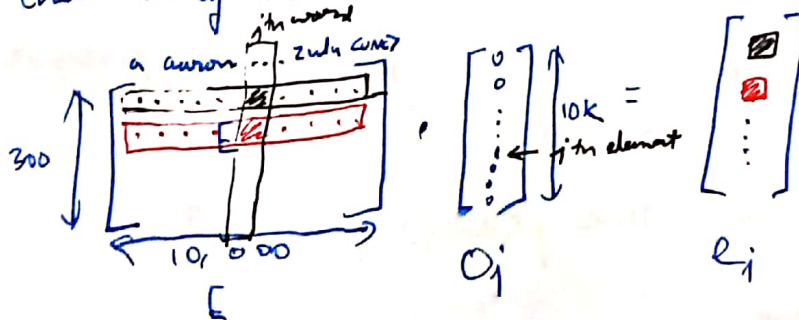 jth word
a aaron ... zulu <UNK>
300
10,000
E
0
0
10K
=
jth element
O_j
e_j